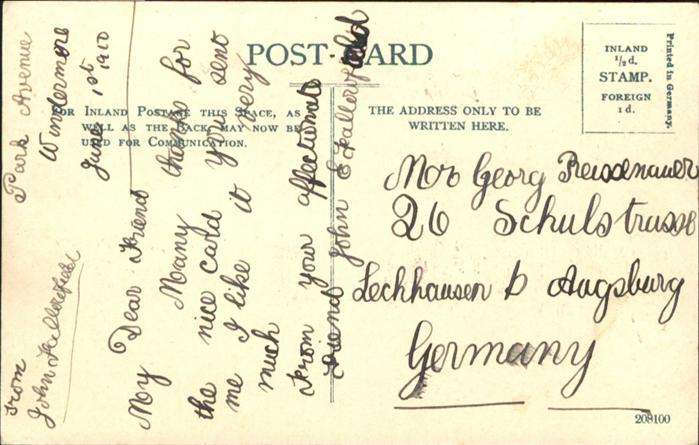 POST-CARD
FOR INLAND POSTAGE THIS SPACE, AS
WELL AS THE BACK, MAY NOW BE
USED FOR COMMUNICATION.
THE ADDRESS ONLY TO BE
WRITTEN HERE.
INLAND
½d.
STAMP.
FOREIGN
1d.
Printed in Germany.
Park Avenue
Windermore
June 1st 1910
My Dear Friend
Many thanks for
the nice card you send
me I like it very
much
From your affectionate
friend John E
From
John
Mr Georg Reissenauer
26 Schulstrasse
Lechhausen b Augsburg
Germany
208100